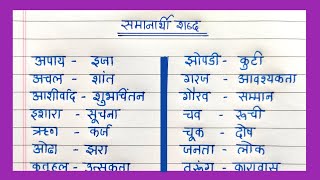 समानार्थी शब्द
अपाय - इजा
अचल - शांत
आशीर्वाद - शुभचिंतन
इशारा - सूचना
ऋण - कर्ज
ओढा - झरा
कुतूहल - उत्सुकता
झोपडी - कुटी
गरज - आवश्यकता
गौरव - सम्मान
चव - रूची
चूक - दोष
जनता - लोक
तुरूंग - कारावास